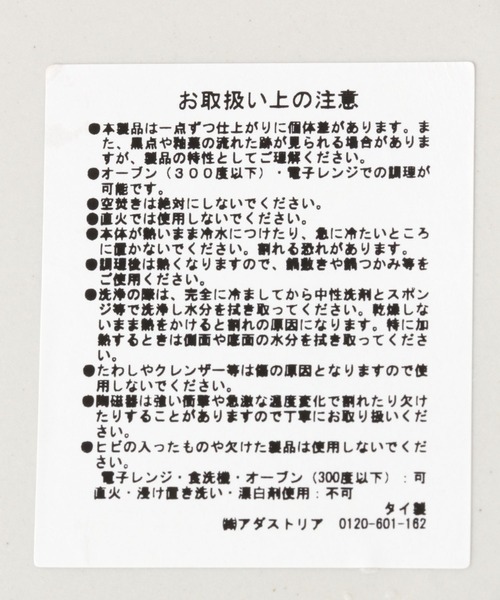 お取扱い上の注意
●本製品は一点ずつ仕上がりに個体差があります。ま
た、黒点や釉薬の流れた跡が見られる場合がありま
すが、製品の特性としてご理解ください。
●オーブン（３００度以下）・電子レンジでの調理が
可能です。
●空焚きは絶対にしないでください。
●直火では使用しないでください。
●本体が熱いまま冷水につけたり、急に冷たいところ
に置かないでください。割れる恐れがあります。
●調理後は熱くなりますので、鍋敷きや鍋つかみ等を
ご使用ください。
●洗浄の際は、完全に冷ましてから中性洗剤とスポン
ジ等で洗浄し水分を拭き取ってください。乾燥しな
いまま熱をかけると割れの原因になります。特に加
熱するときは側面や底面の水分を拭き取ってくださ
い。
●たわしやクレンザー等は傷の原因となりますので使
用しないでください。
●陶磁器は強い衝撃や急激な温度変化で割れたり欠け
たりすることがありますので丁寧にお取り扱いくだ
さい。
●ヒビの入ったものや欠けた製品は使用しないでくだ
さい。
電子レンジ・食洗機・オーブン（300度以下）：可
直火・浸け置き洗い・漂白剤使用：不可
タイ製
㈱アダストリア 0120-601-162